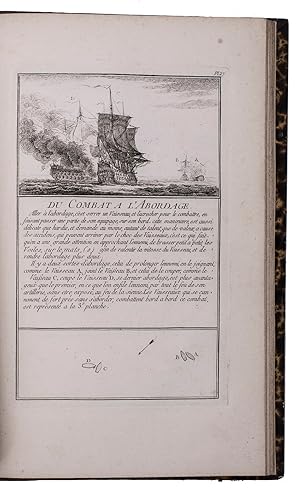 Pl. 27
DU COMBAT A L'ABORDAGE
Aller à l'abordage, c'est serrer un Vaisseau et l'acrocher pour le combattre, en
faisant passer une partie de son équipage, sur son bord. cette manœuvre est aussi
délicate que hardie, et demande au moins, autant de talent, que de valeur, a cause
des accidens, qui peuvent arriver par le choc des Vaisseaux, c'est ce qui fait
qu'on a une grande attention en approchant l'ennemi, de brasser petit à petit, les
Voiles, sur le mats, afin de ralentir la vitesse du Vaisseau, et de
rendre l'abordage plus doux.
Il y a deux sortes d'abordage, celui de prolonger l'ennemi, en le joignant,
comme le Vaisseau A, joint le Vaisseau B, et celui de le couper, comme le
Vaisseau C, coupe le Vaisseau D, ce dernier abordage, est plus avanta-
geux que le premier, en ce que l'on enfile l'ennemi par tout le feu de son
artillerie, sans être exposé, au feu de la sienne. Les Vaisseaux qui se can-
nonent de fort près sans s'aborder, combattent bord a bord ce combat,
est représenté a la 3e planche.
D
C